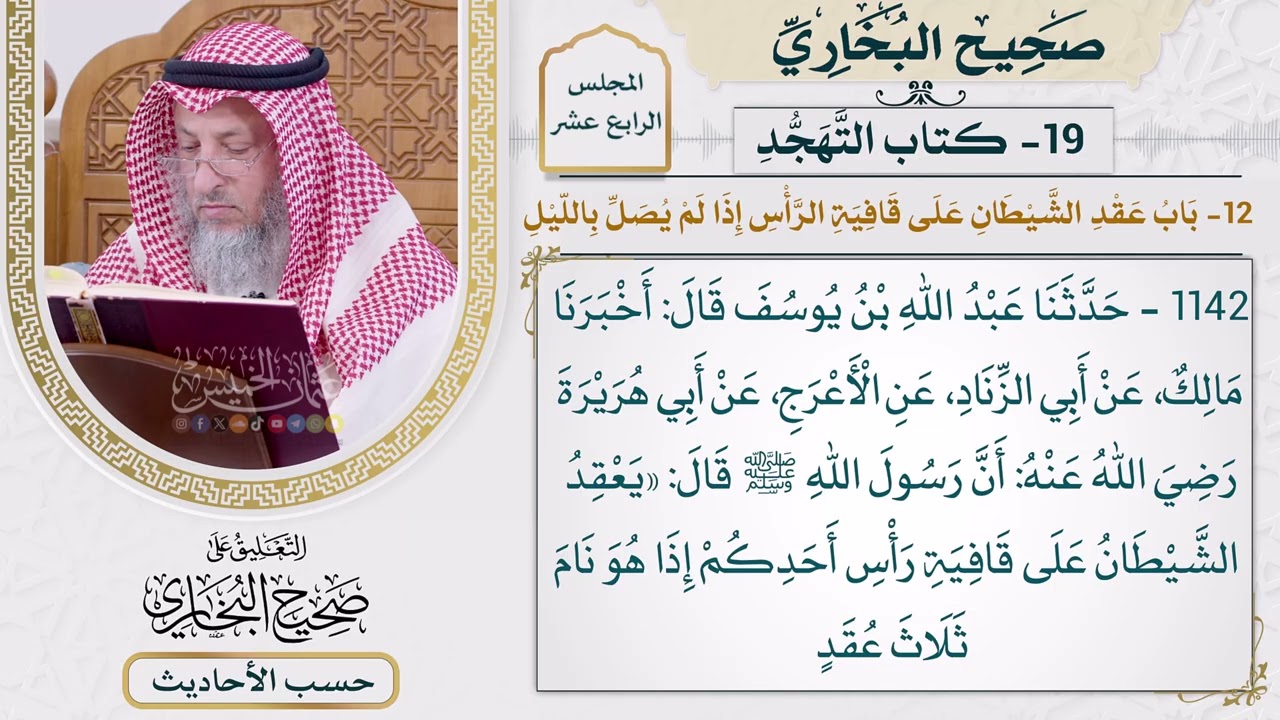 صَحِيح البُخَارِيِّ
المجلس
الرابع عشر
19- كتاب التَّهَجُّدِ
12- بَابُ عَقْدِ الشَّيْطَانِ عَلَى قَافِيَةِ الرَّأْسِ إِذَا لَمْ يُصَلِّ بِاللَّيْلِ
1142 - حَدَّثَنَا عَبْدُ اللهِ بْنُ يُوسُفَ قَالَ: أَخْبَرَنَا
مَالِكٌ، عَنْ أَبِي الزِّنَادِ، عَنِ الْأَعْرَجِ، عَنْ أَبِي هُرَيْرَةَ
رَضِيَ اللهُ عَنْهُ: أَنَّ رَسُولَ اللهِ ﷺ قَالَ: «يَعْقِدُ
الشَّيْطَانُ عَلَى قَافِيَةِ رَأْسِ أَحَدِكُمْ إِذَا هُوَ نَامَ
ثَلَاثَ عُقَدٍ
عُثمان الخميس
التَّعْلِيقُ عَلَى
صَحِيحُ البُخَارِي
حسب الأحاديث